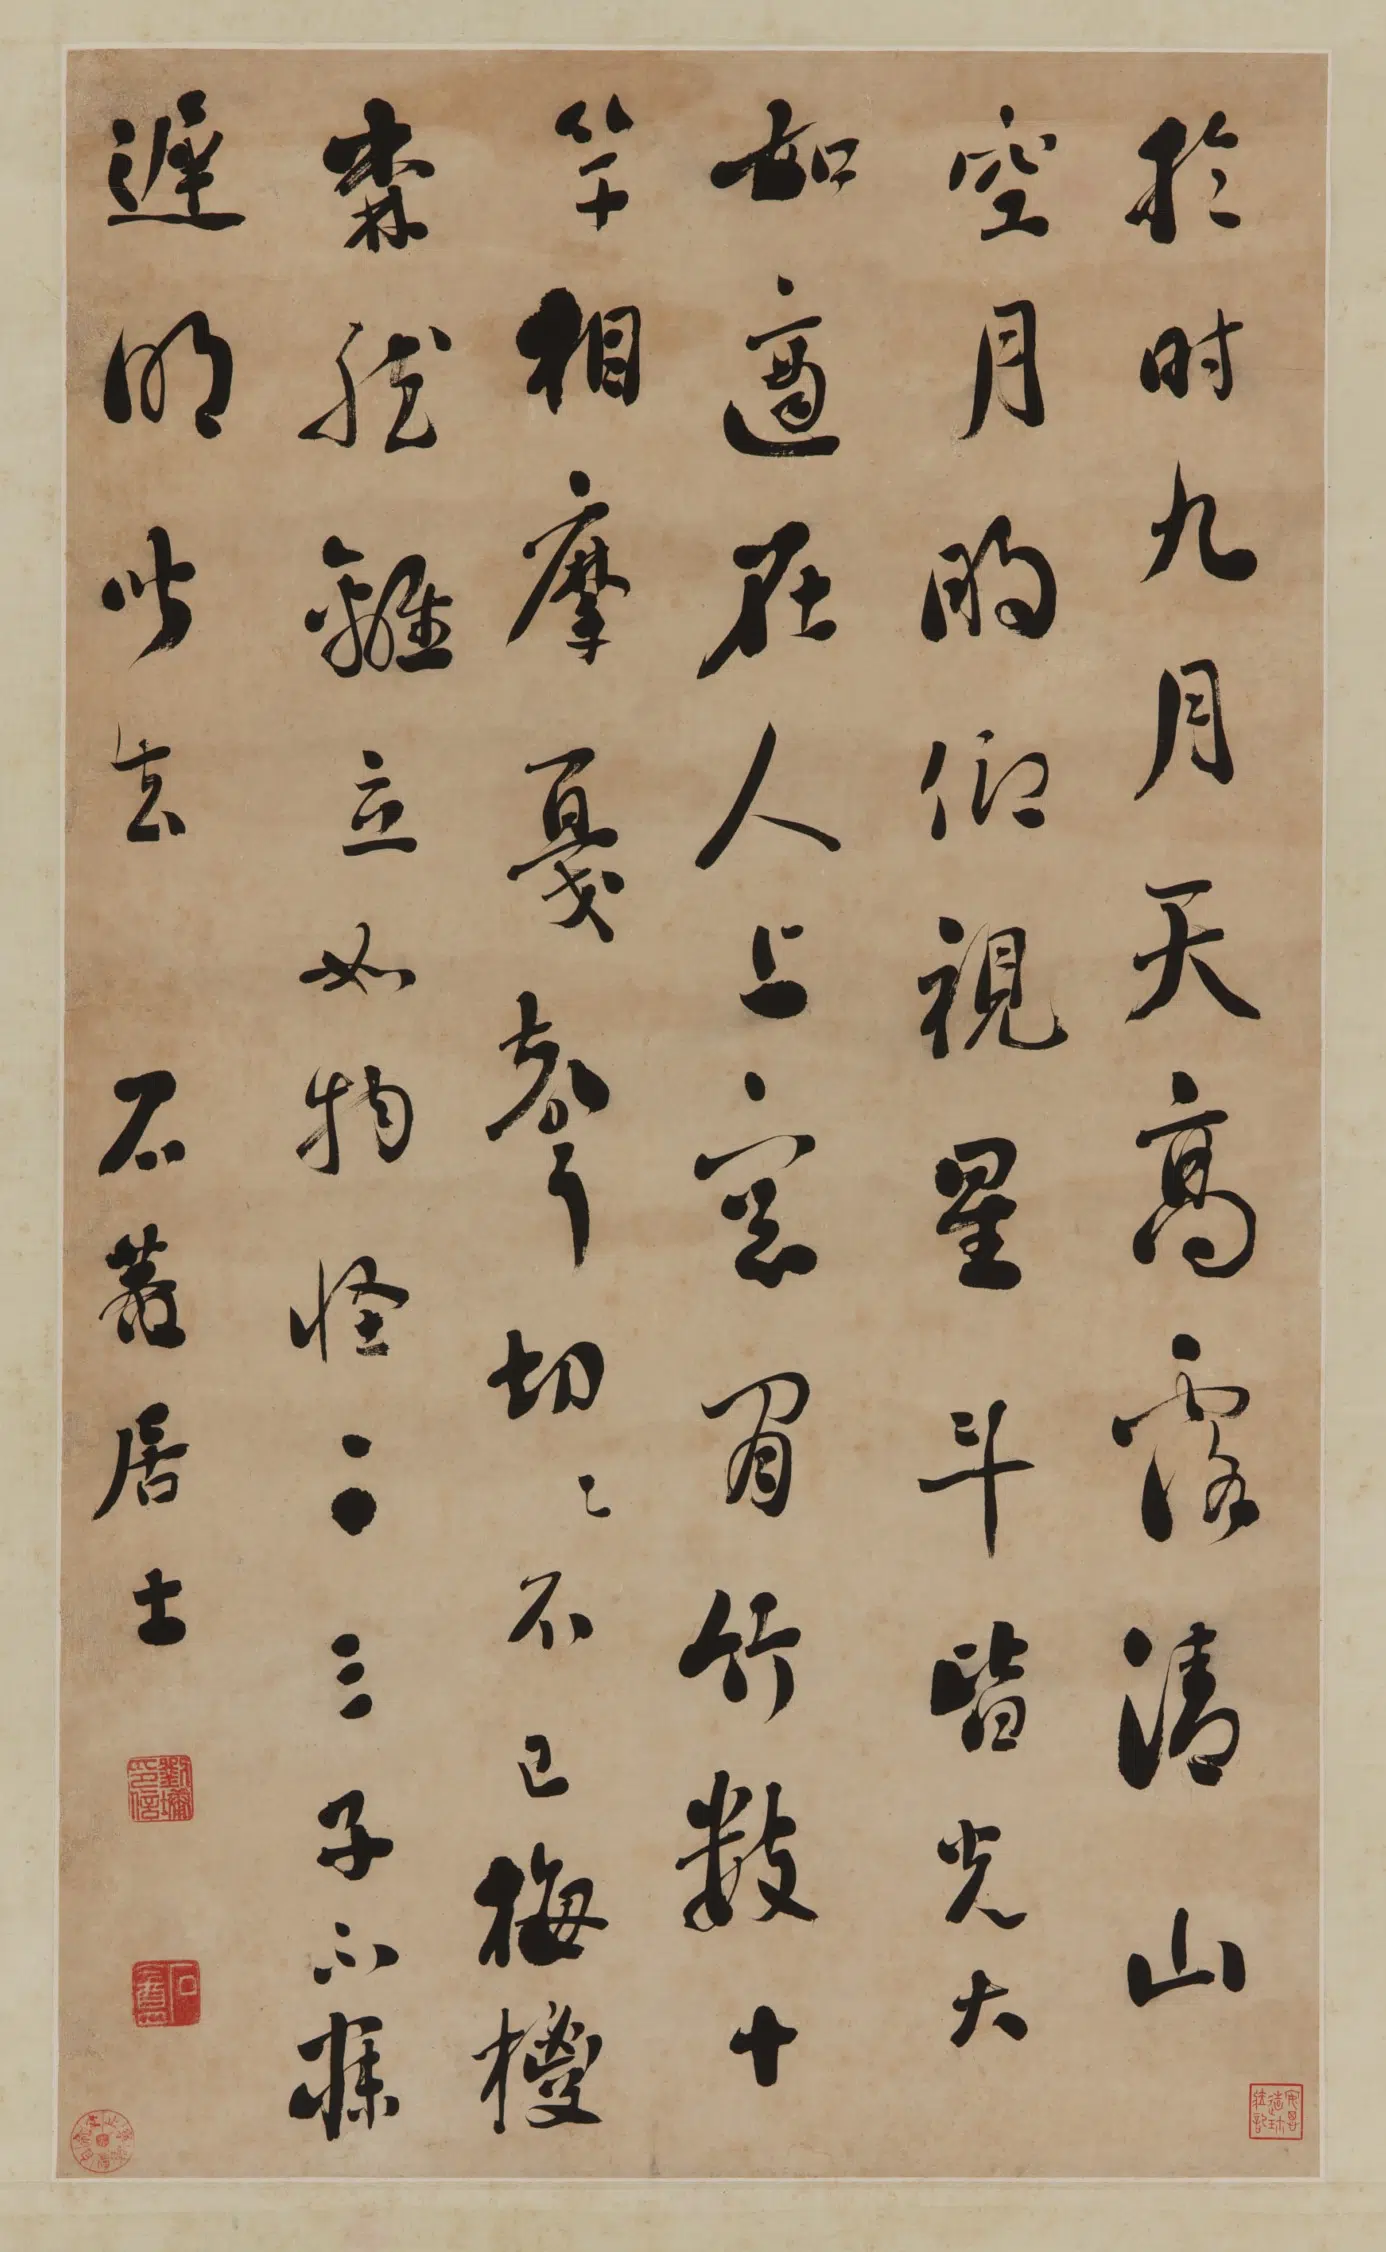 於时九月天高露清山
空月明仰視星斗皆光大
如適在人上窓間竹數十
竿相摩戛聲切〻不已梅㯶
森然離立如物怪二三子不寐
遲明皆去
石菴居士
劉墉印信
石菴